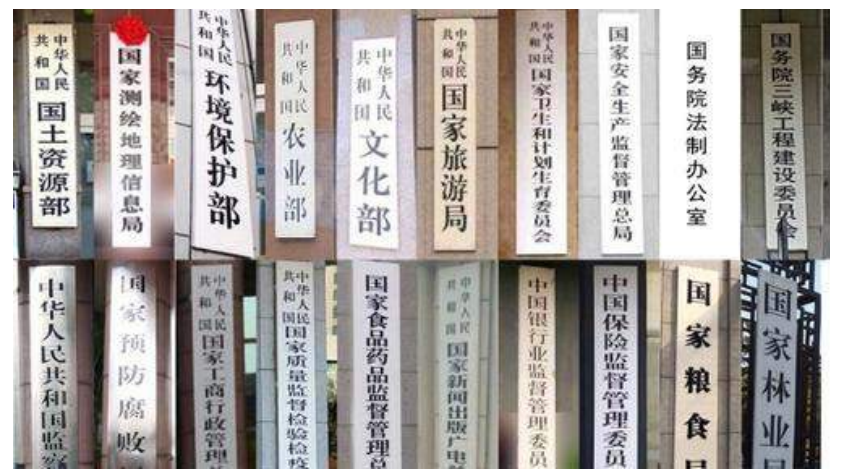 中华人民共和国国土资源部
国家测绘地理信息局
中华人民共和国环境保护部
中华人民共和国农业部
中华人民共和国文化部
中华人民共和国国家旅游局
中华人民共和国国家卫生和计划生育委员会
国家安全生产监督管理总局
国务院法制办公室
国务院三峡工程建设委员会
中华人民共和国监察
国家预防腐败
中华人民共和国国家工商行政管理
中华人民共和国国家质量监督检验检疫
国家食品药品监督管理总
中华人民共和国国家新闻出版广电
中国银行业监督管理委员
中国保险监督管理委员
国家粮食局
国家林业局